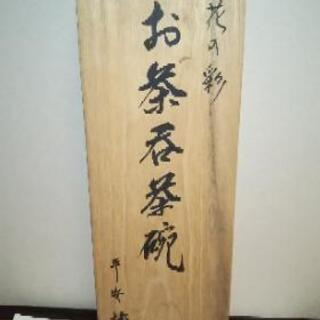 花の彩
お茶呑茶碗
平安